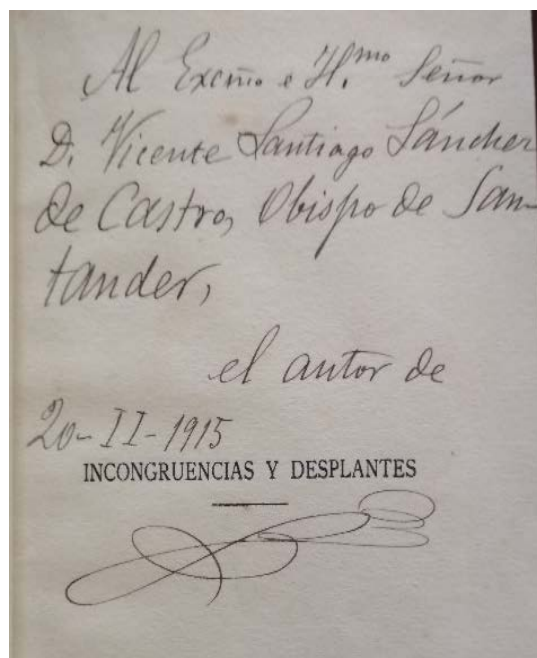 Al Excmo e Il.mo Señor
D. Vicente Santiago Sánchez
de Castro, Obispo de San-
tander,
el autor de
20-II-1915
INCONGRUENCIAS Y DESPLANTES